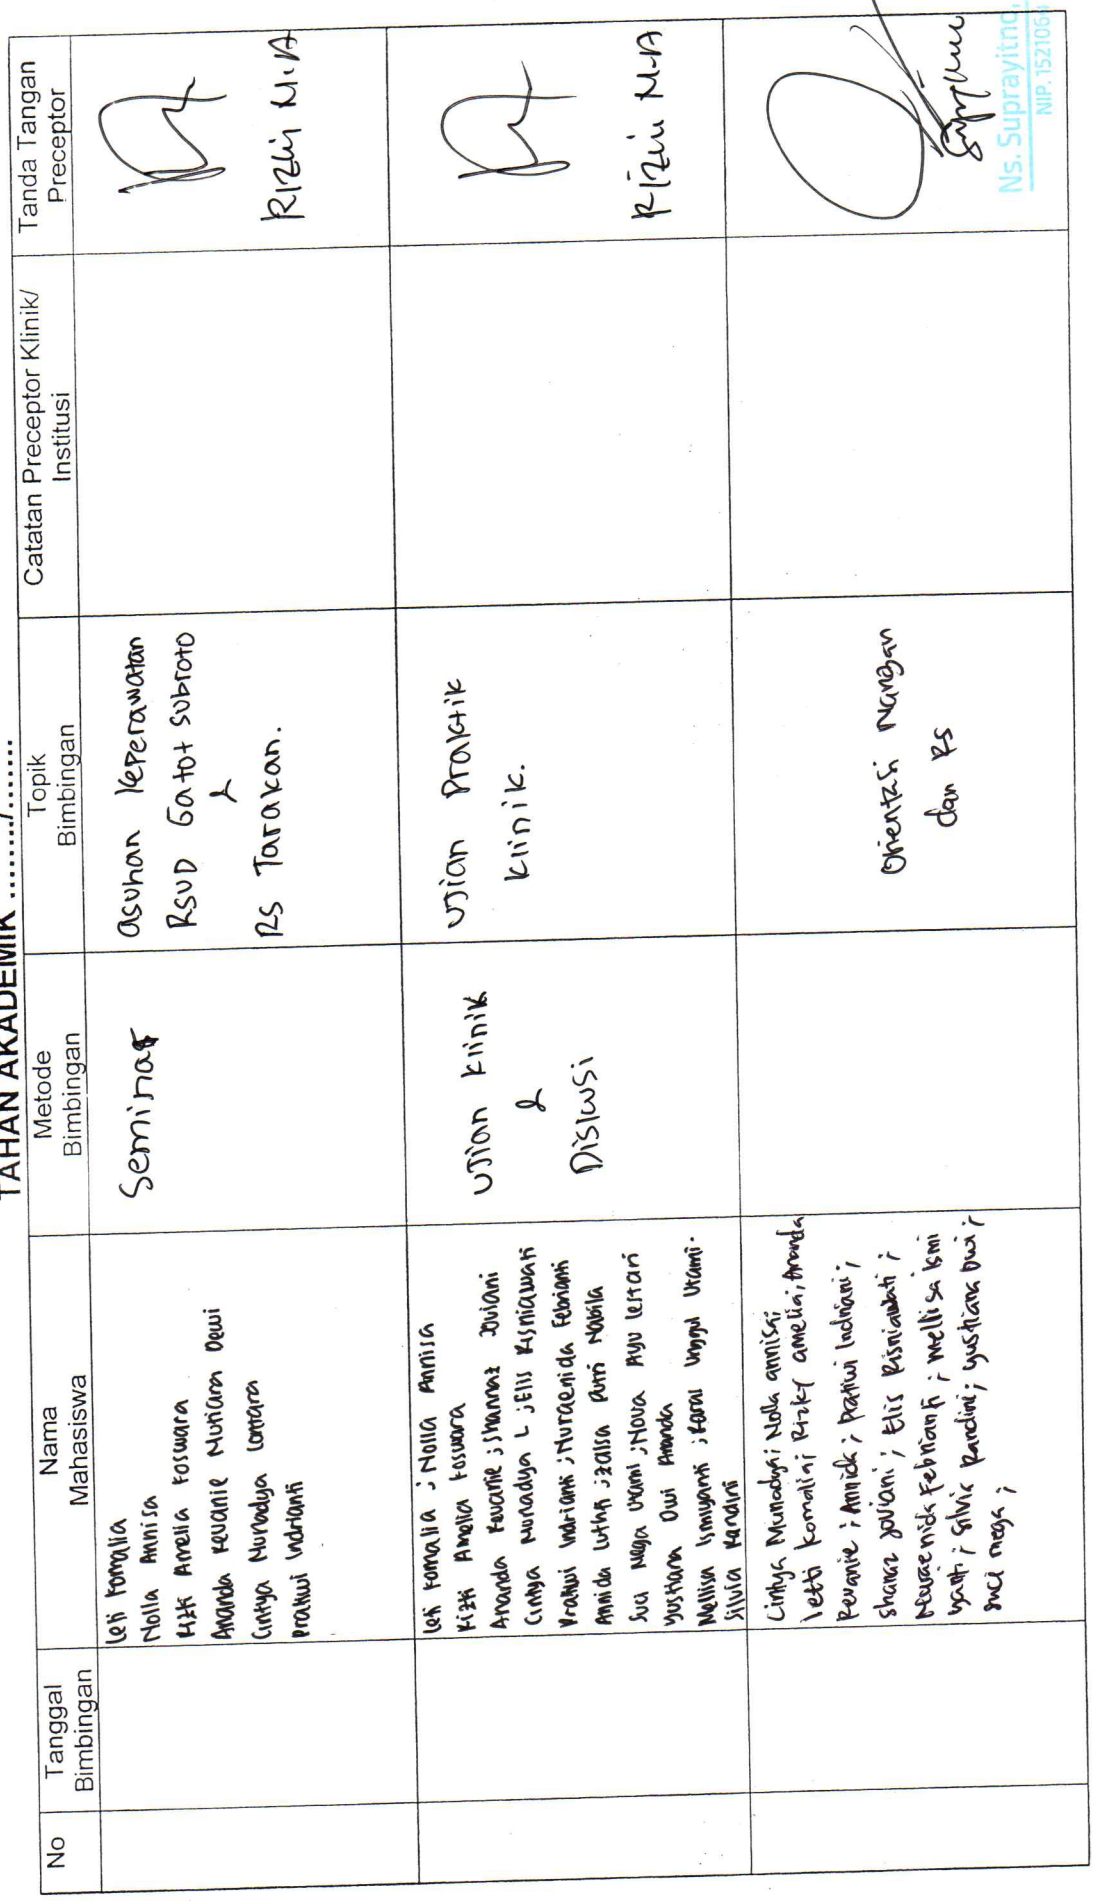 TAHAN AKADEMIK ......./.......
No
Tanggal
Bimbingan
Nama
Mahasiswa
Metode
Bimbingan
Topik
Bimbingan
Catatan Preceptor Klinik/
Institusi
Tanda Tangan
Preceptor
Leti Komalia
Nolla Annisa
Rizki Amelia Koswara
Ananda Revanie Mutiara Dewi
Cintya Munadya Lontara
Pratiwi Indrianti
Seminar
asuhan keperawatan
RSUD Gatot subroto
&
RS Tarakan.
Rizlii M.A
Leti Komalia ; Nolla Annisa
Rizki Amelia Koswara
Ananda Revanie ; Shannaz Joviani
Cintya Munadya L ; Elis Risniawati
Pratiwi Indrianti ; Nuraenida Febrianti
Annida Luthfi ; Zalsa Putri Nabila
Suci Mega Utami ; Nova Ayu Lestari
Yustiana Dwi Ananda
Mellisa Ismiyanti ; Unggul Utami.
Silvia Randini
Ujian klinik
&
Diskusi
Ujian Praktik
Klinik.
Rizlii M.A
Cintya Munadya; Nolla annisa;
Letti Komalia; Rizky amelia; Ananda
Revanie ; Annida ; Pratiwi Indriani ;
Shanaz Joviani ; Elis Risniawati ;
Nuraenida Febrianti ; Mellisa Ismi
yanti ; Silvia Randini ; yustiana Dwi ;
Suci mega ;
Orientasi Ruangan
dan RS
Ns. Suprayitno,
NIP. 1521068